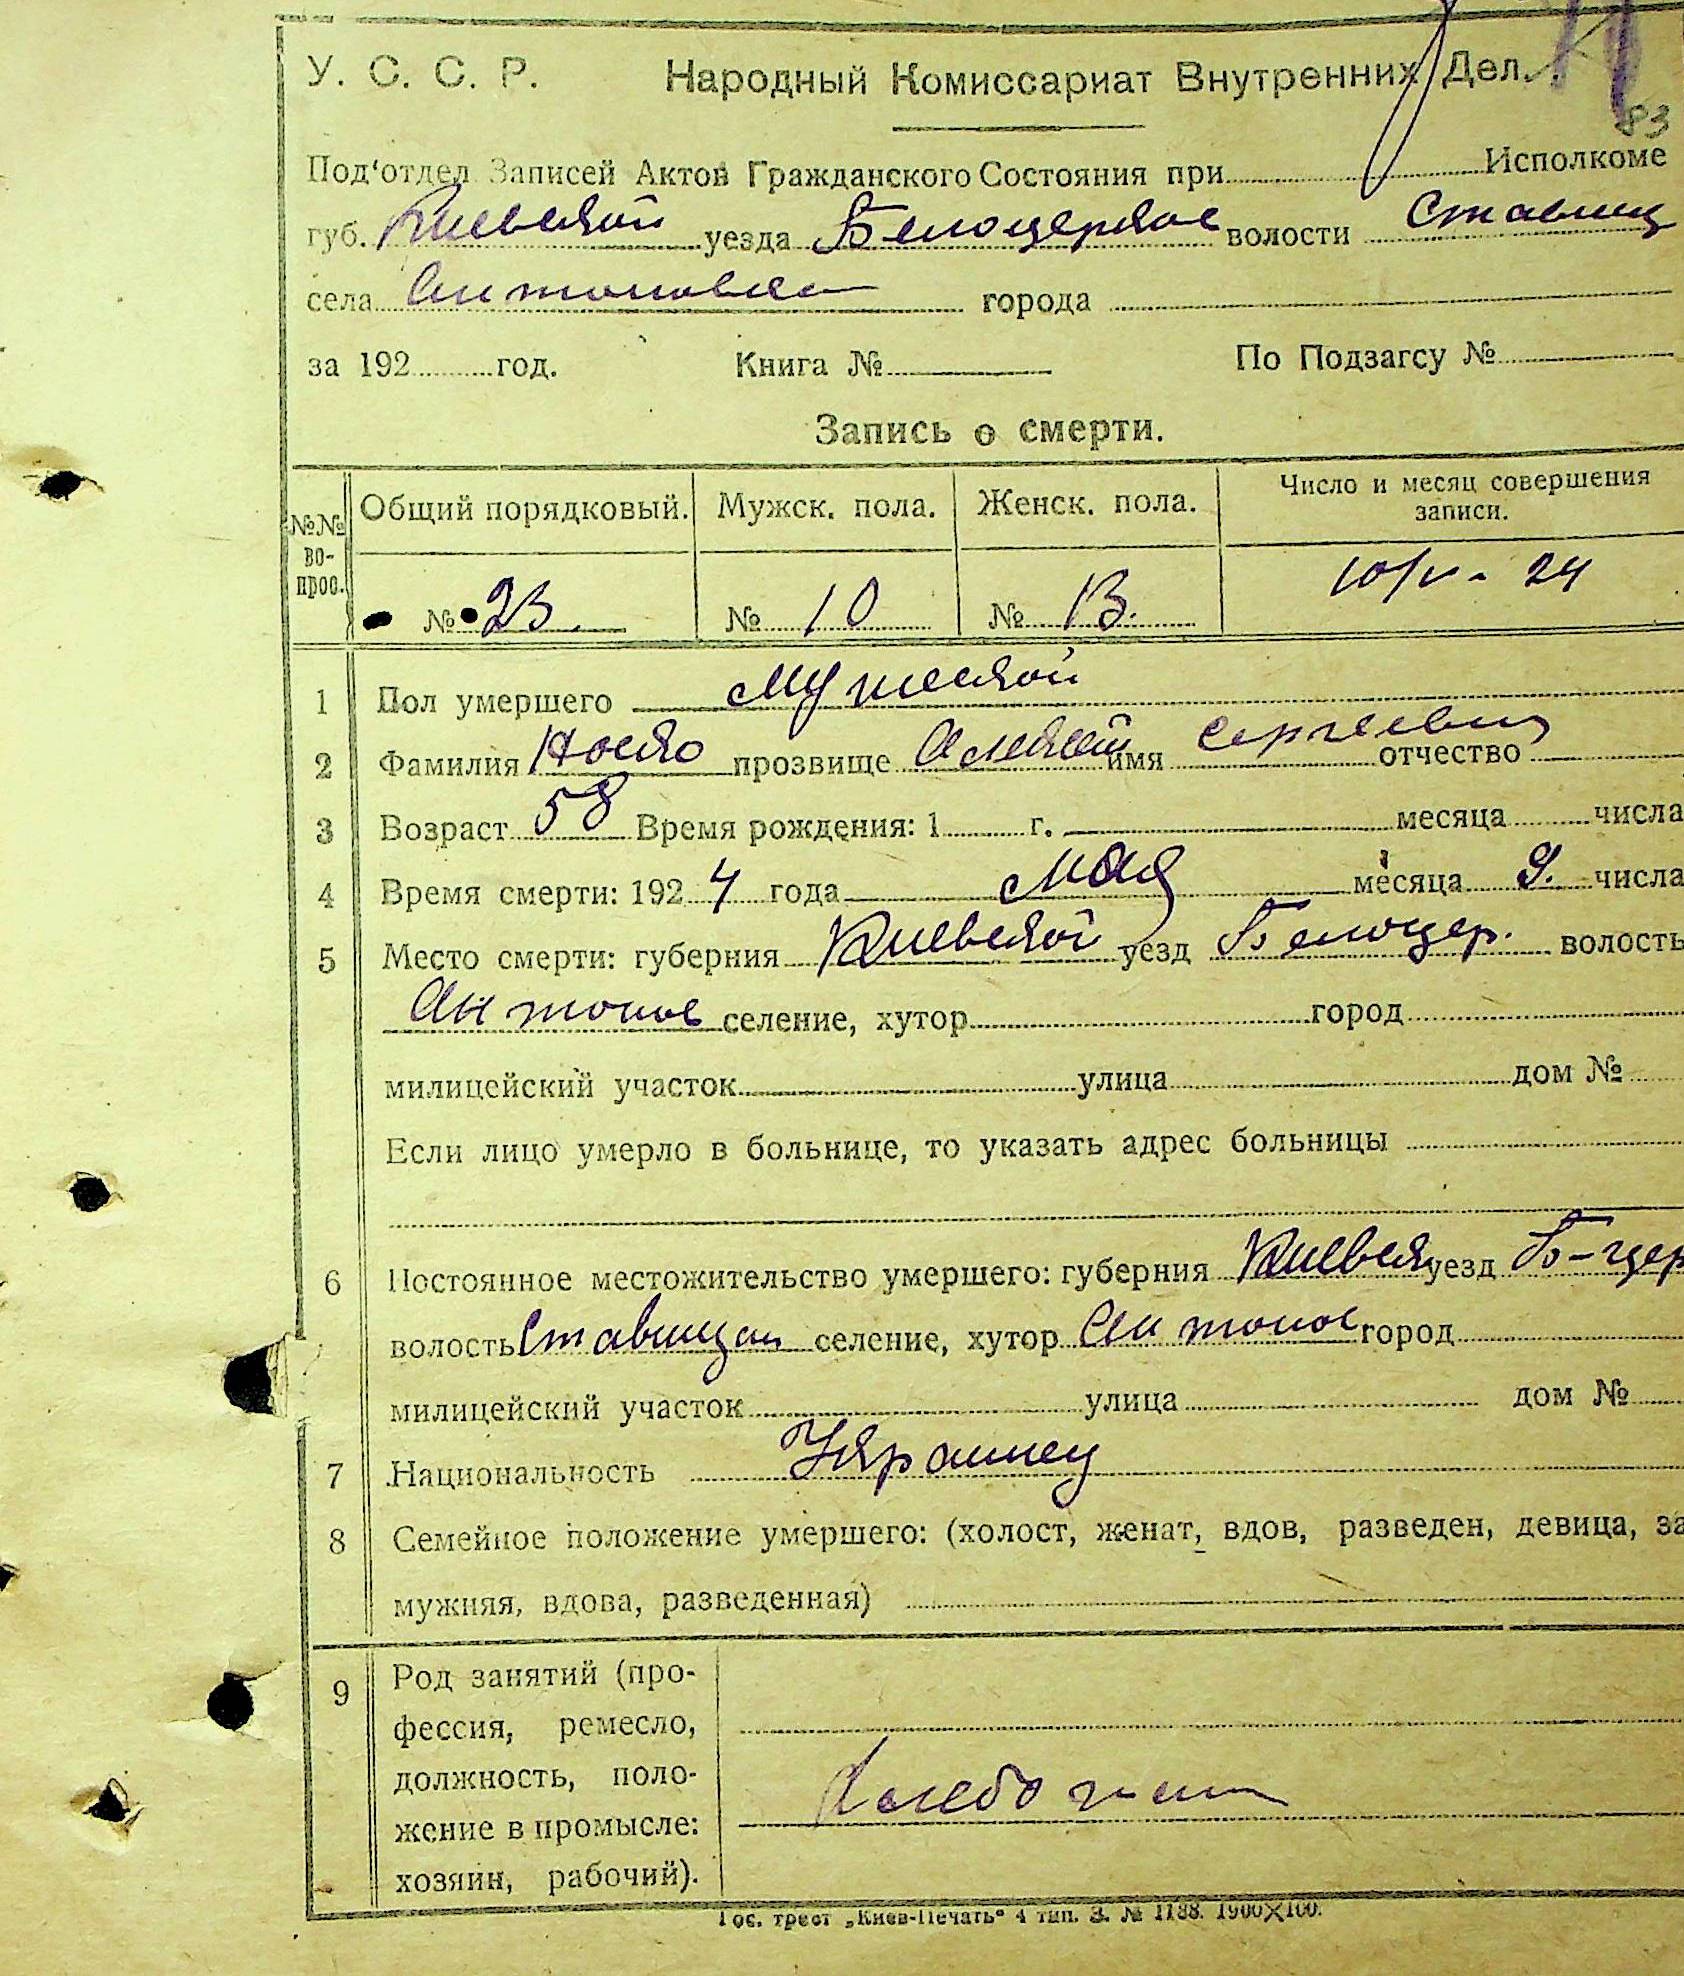 У. С. С. Р. Народный Комиссариат Внутренних Дел.
83
Под'отдел Записей Актов Гражданского Состояния при Исполкоме
губ. Киевской уезда Белоцерков волости Ставищ
села Антоновка города
за 192 год. Книга № По Подзагсу №
Запись о смерти.
№№ вопрос. Общий порядковый. Мужск. пола. Женск. пола. Число и месяц совершения записи.
№ 23. № 10 № 13. 10/V - 24
1 Пол умершего Мужеской
2 Фамилия прозвище Алексей имя Сергеевич отчество
3 Возраст 58 Время рождения: 1 г. месяца числа
4 Время смерти: 1924 года Мая месяца 9. числа
5 Место смерти: губерния Киевской уезд Белоцер. волость
Антонов селение, хутор город
милицейский участок улица дом №
Если лицо умерло в больнице, то указать адрес больницы
6 Постоянное местожительство умершего: губерния Киевск уезд Б-цер
волость Ставищан селение, хутор Антонов город
милицейский участок улица дом №
7 Национальность Украинец
8 Семейное положение умершего: (холост, женат, вдов, разведен, девица, за
мужняя, вдова, разведенная)
9 Род занятий (про-
фессия, ремесло,
должность, поло- Хлебопаш
жение в промысле:
хозяин, рабочий).
Гос. трест „Киев-Печать" 4 тип. З. № 1188. 1900X100.